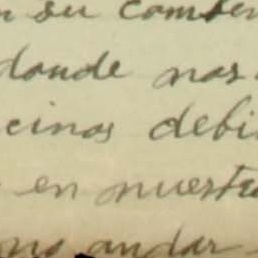 n su comien
donde nos
cinos debi
en nuestr
no andar